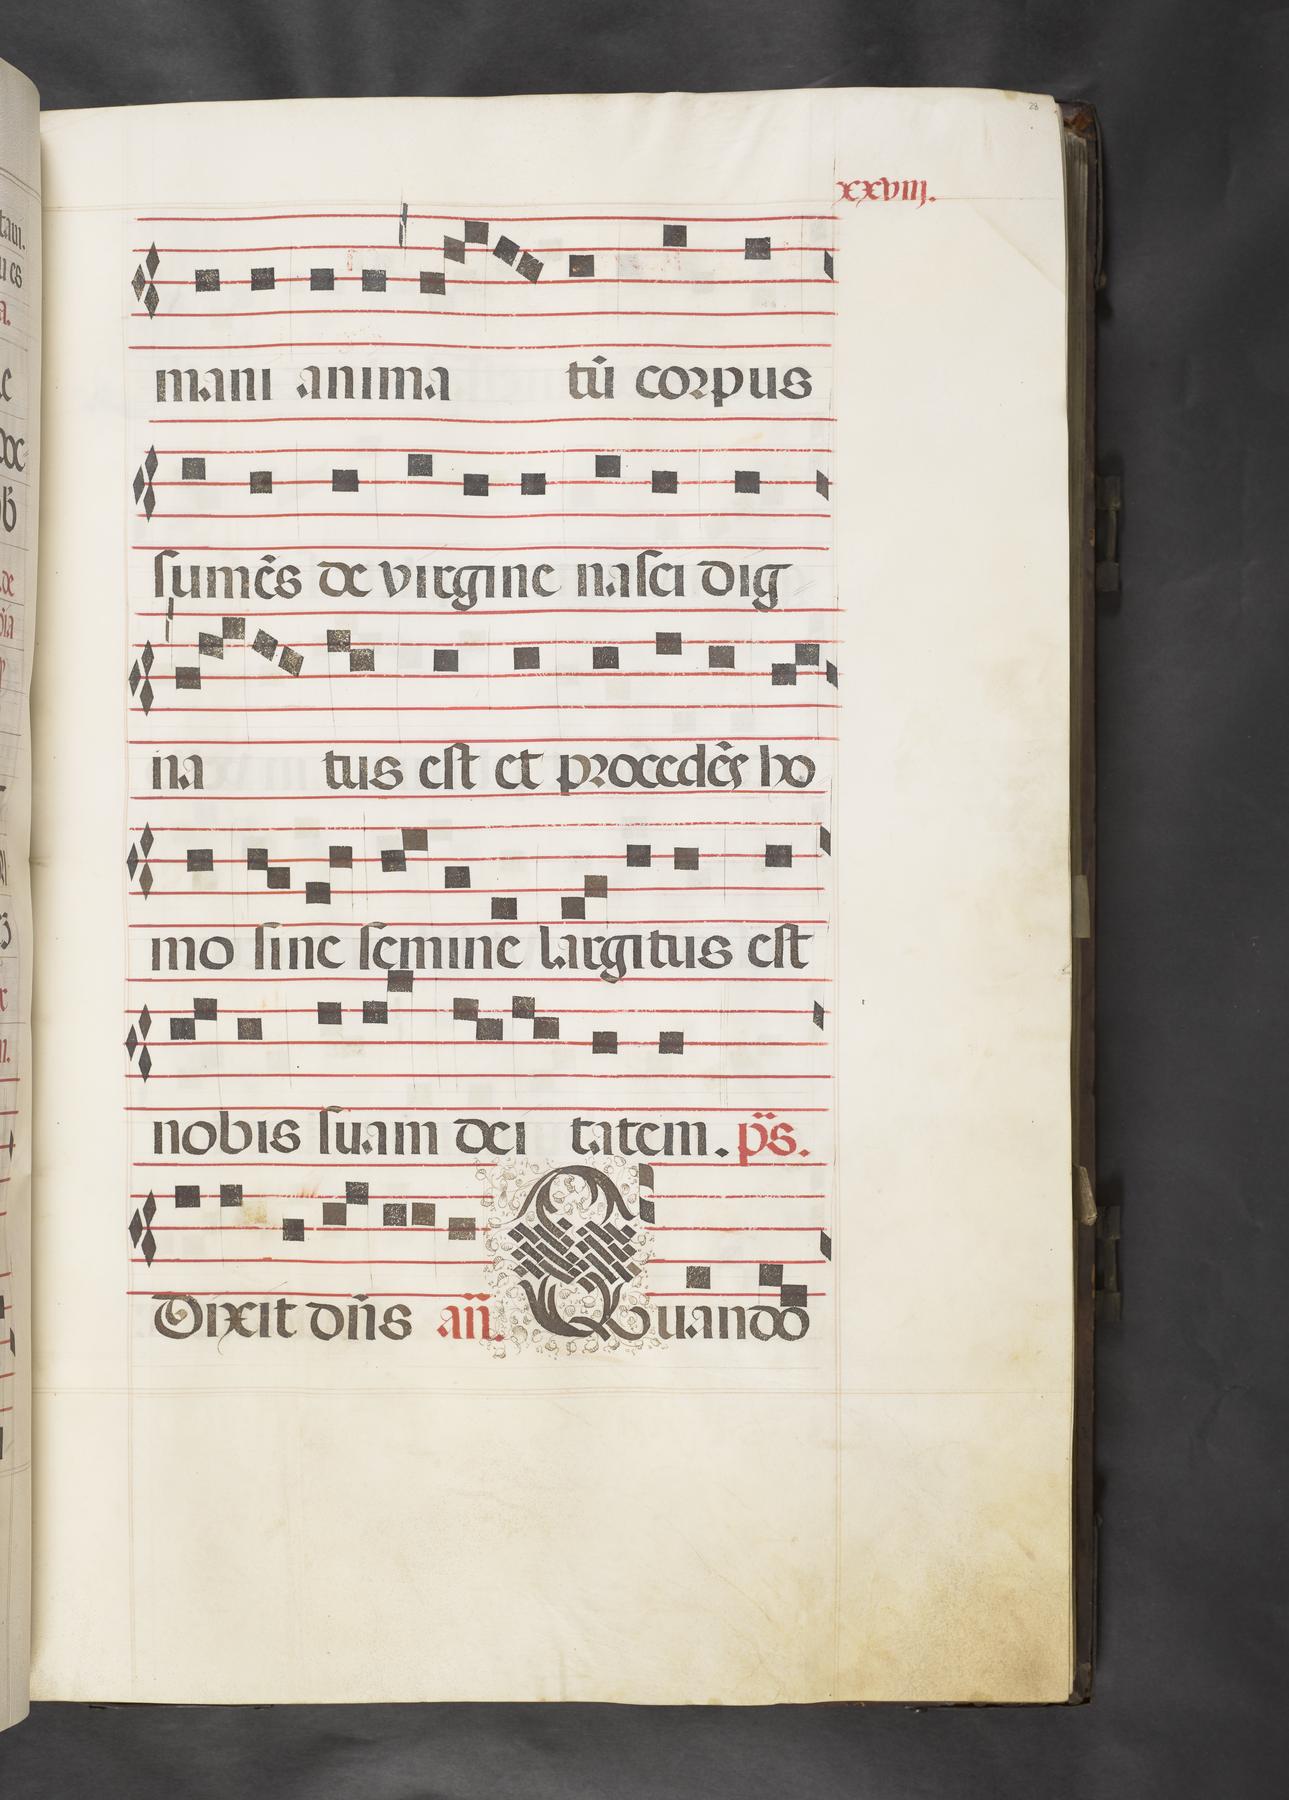 28
xxviij.
mani anima tũ corpus
sumẽs de virgine nasci dig
na tus est et procedẽs ho
mo sine semine largitus est
nobis suam dei tatem. p̈s.
Dixit dñs an̄. Quando